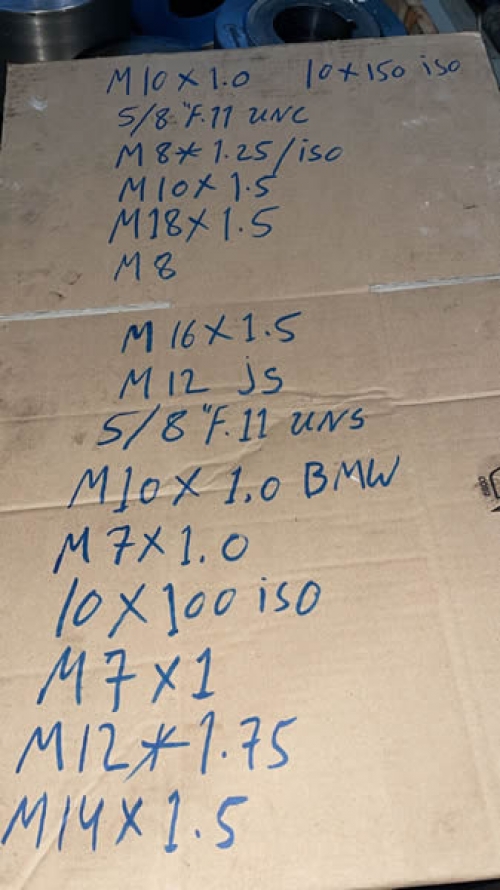 M10×1.0 10×150 iso
5/8"F.11 UNC
M8*1.25/iso
M10×1.5
M18×1.5
M8
M16×1.5
M12 js
5/8"F.11 UNS
M10×1.0 BMW
M7×1.0
10×100 iso
M7×1
M12*1.75
M14×1.5